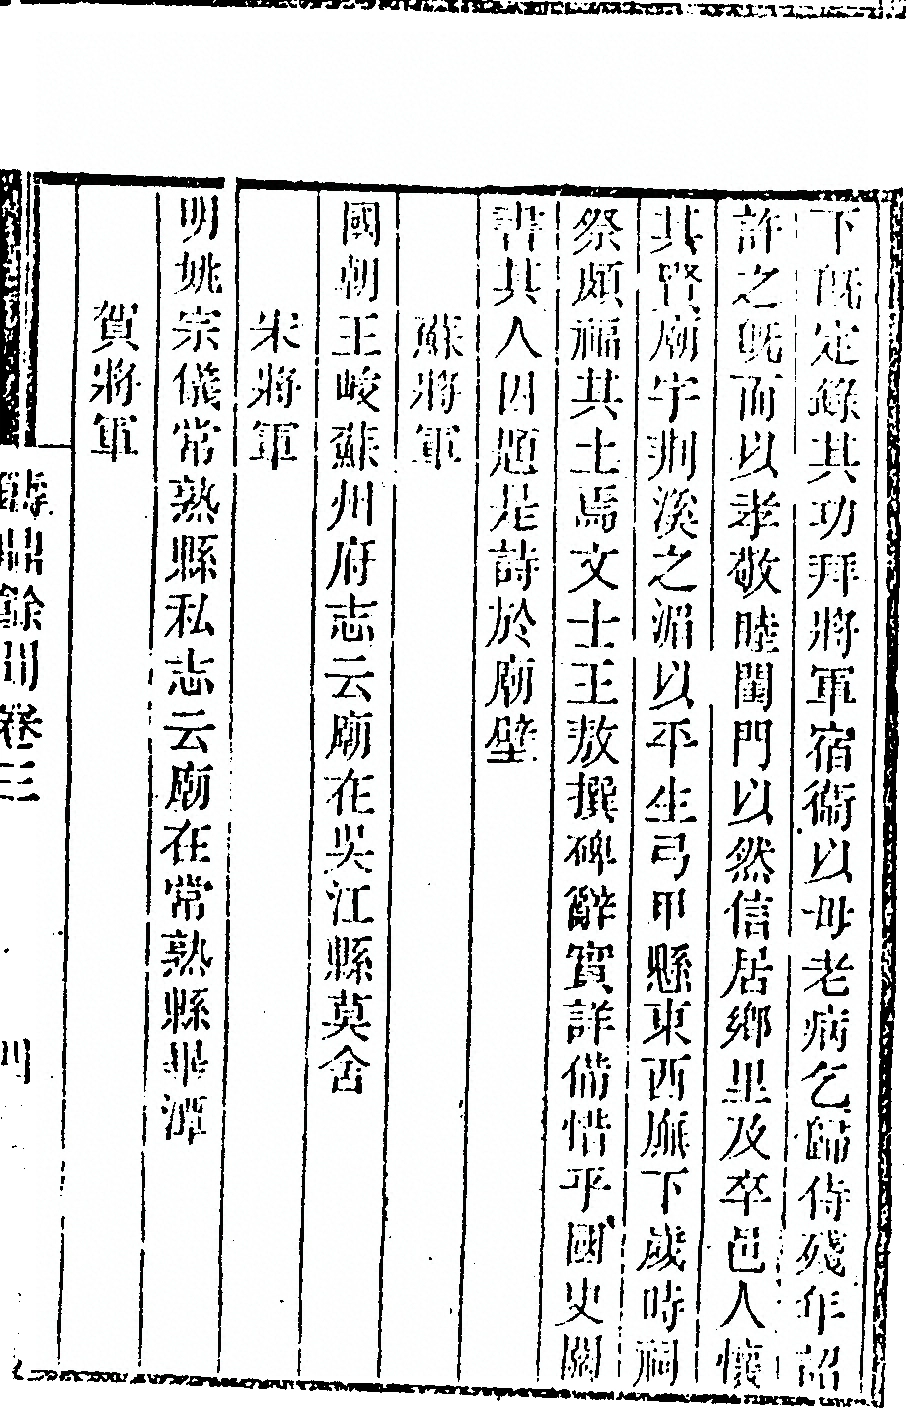 下既定錄其功拜將軍宿衞以母老病乞歸侍殘年詔
許之既而以孝敬睦閨門以然信居鄉里及卒邑人懷
其賢廟字荆溪之湄以平生弓甲懸東西廡下歲時祠
祭頗福其土焉文士王敖撰碑辭實詳備惜乎國史闕
書其人因題是詩於廟壁
蘇將軍
國朝王峻蘇州府志云廟在吳江縣莫舍
宋將軍
明姚宗儀常熟縣私志云廟在常熟縣畢澤
賀將軍
鑄鼎餘聞卷三
四